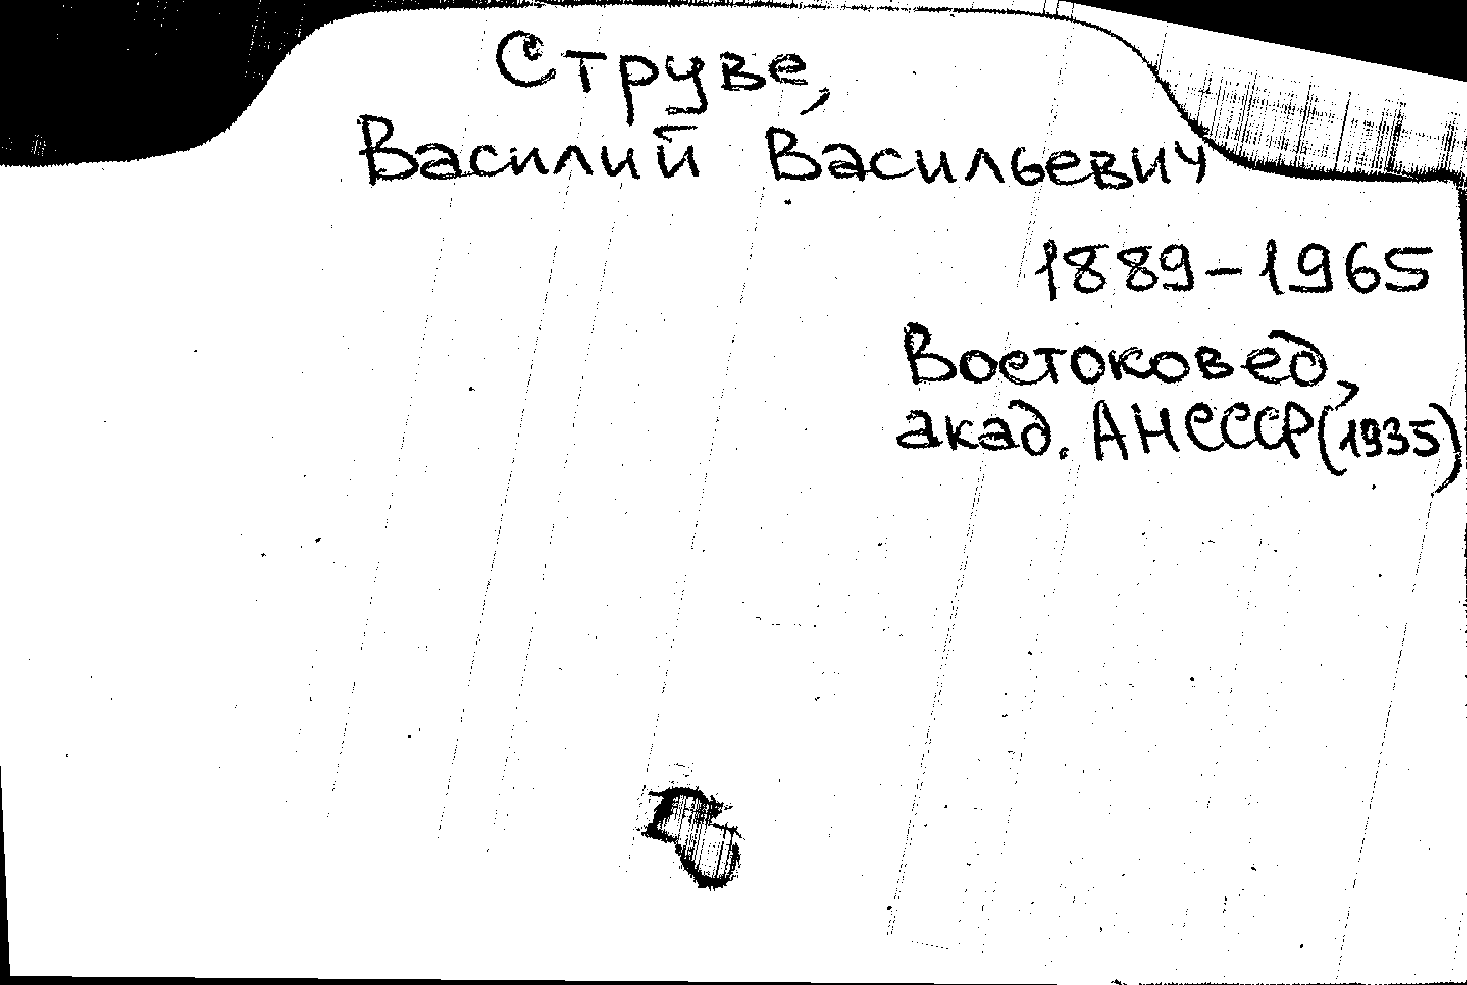 Струве,
Василий Васильевич
1889-1965
Востоковед,
акад. АНСССР(1935)